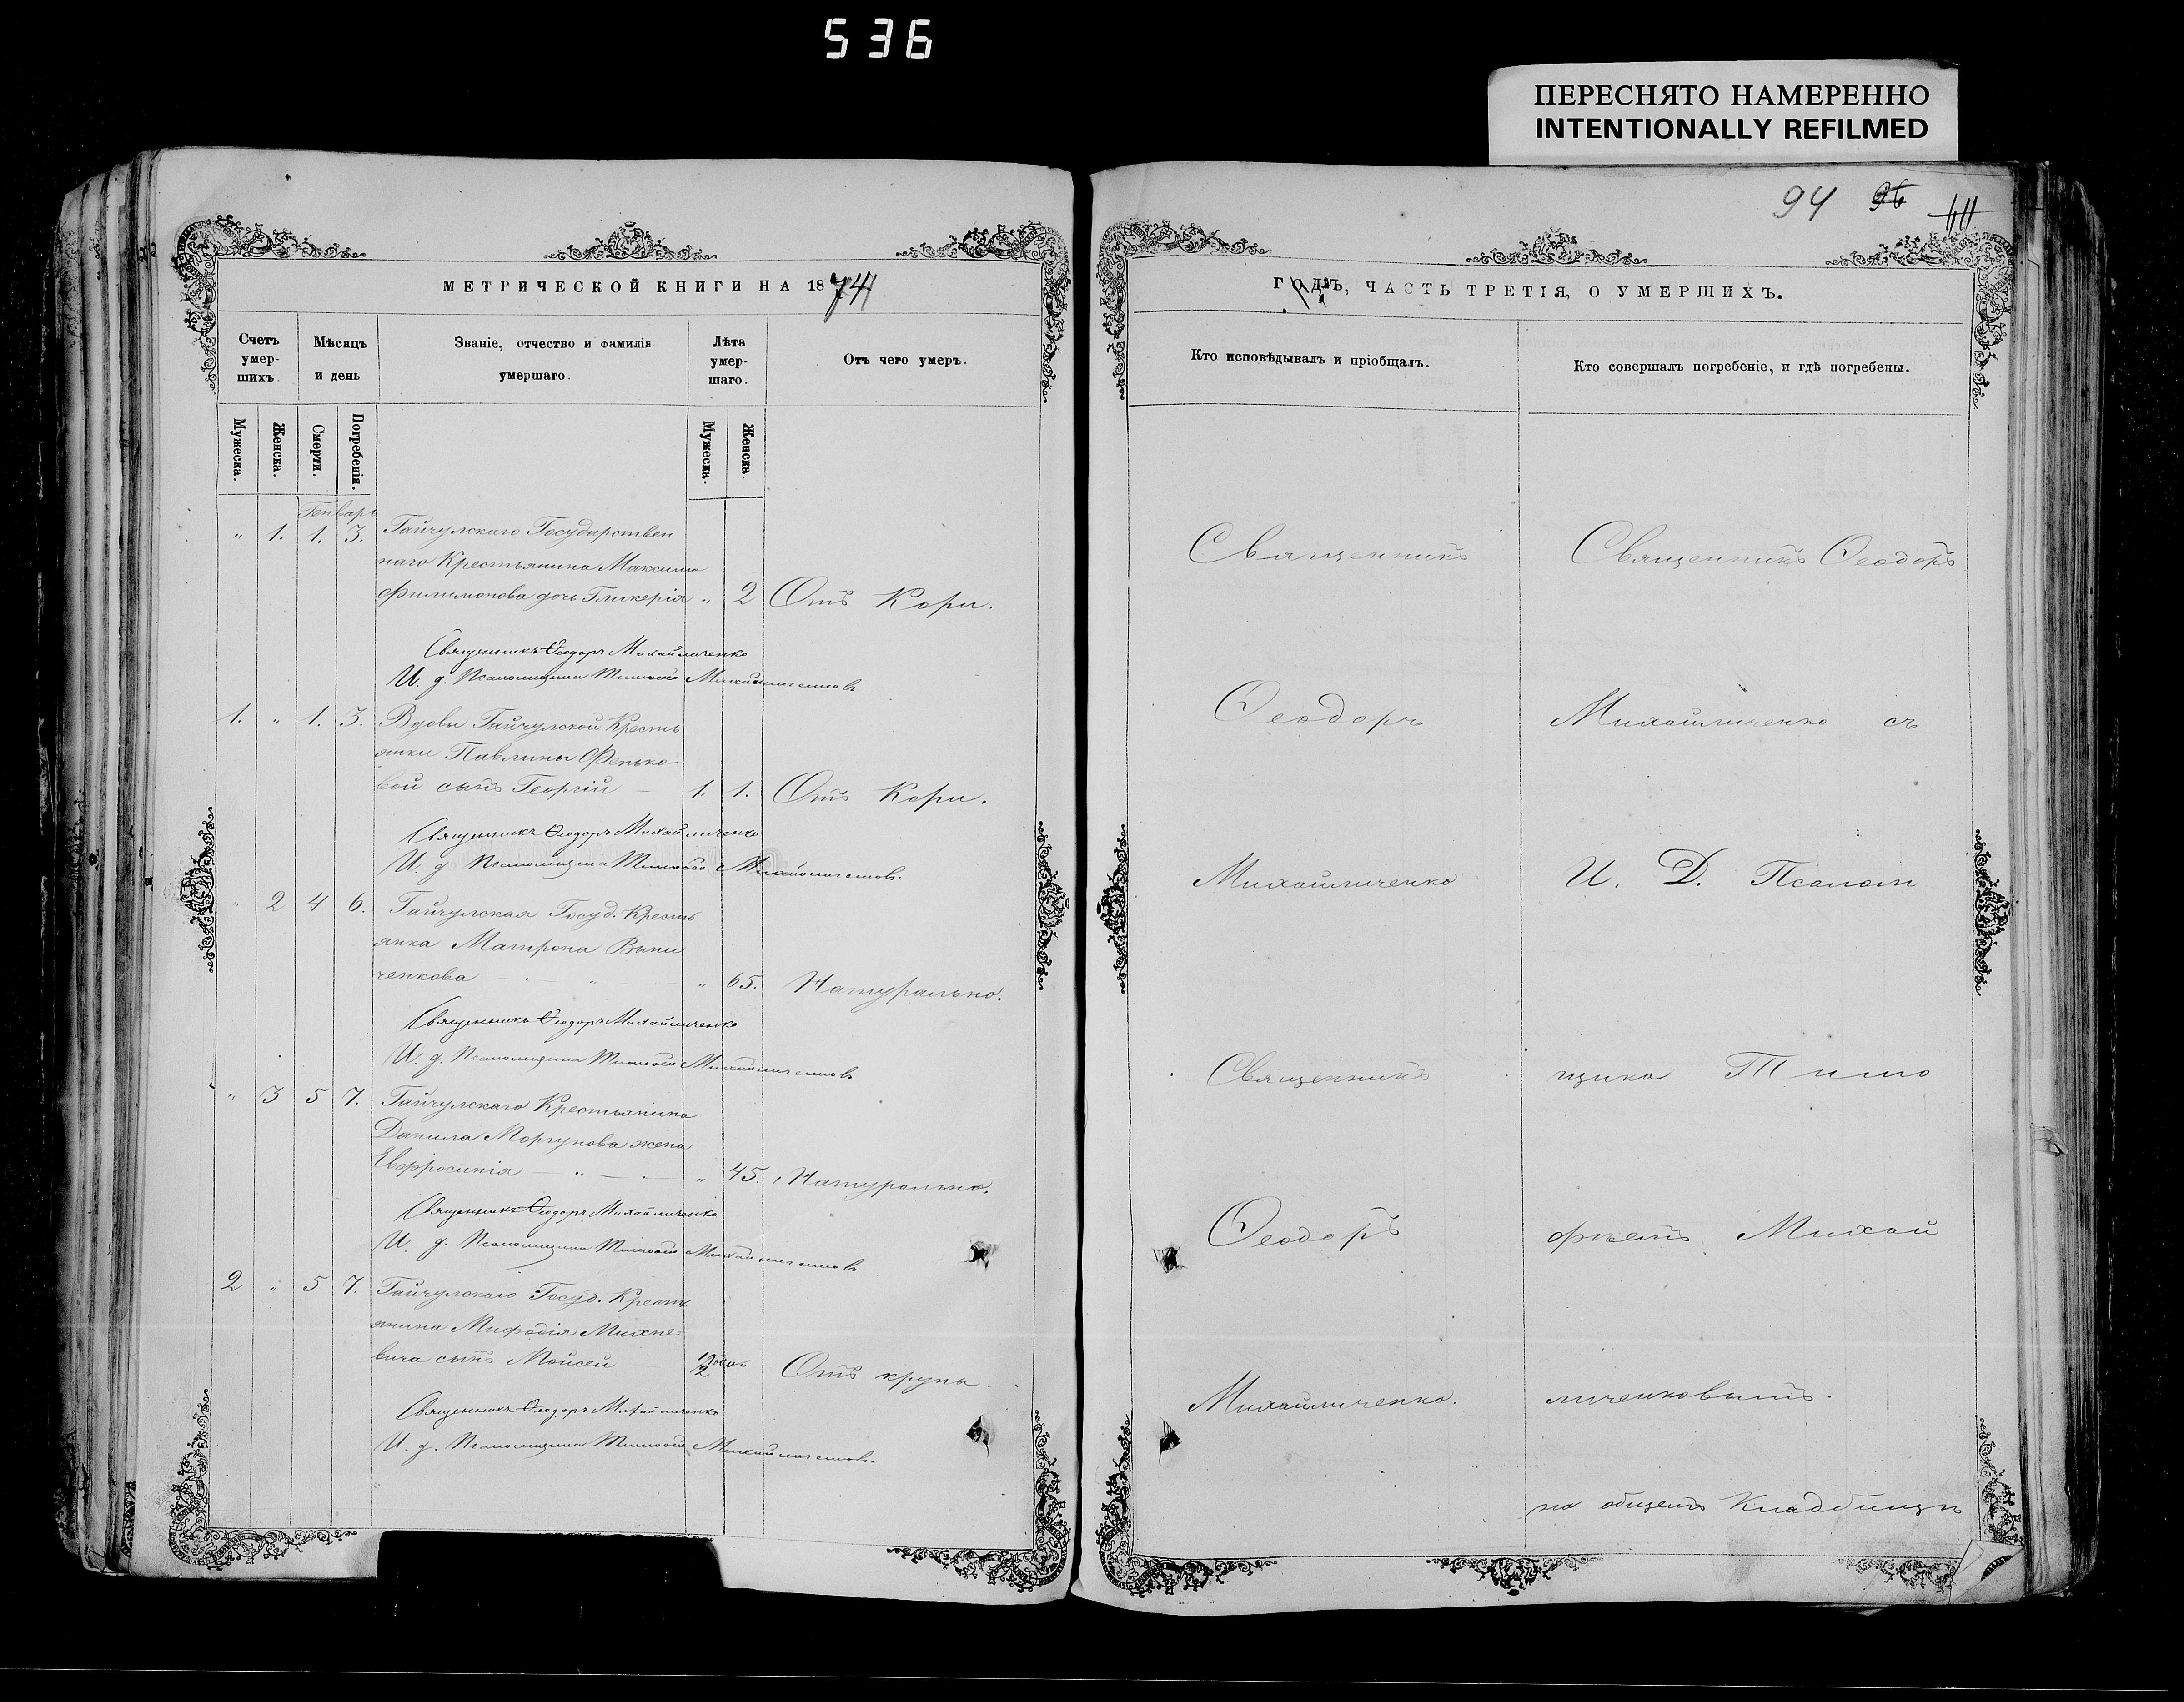 536
ПЕРЕСНЯТО НАМЕРЕННО
INTENTIONALLY REFILMED
94 96
МЕТРИЧЕСКОЙ КНИГИ НА 1874
Счетъ умер-шихъ.
Мѣсяцъ и день
Званіе, отчество и фамилія умершаго.
Лѣта умер-шаго.
Отъ чего умеръ.
Мужеска.
Женска.
Смерти.
Погребенія.
Мужеска.
Женска
Генваря
" 1. 1. 3. Гайчулскаго Государствен
наго Крестьянина Максима
Филимонова дочь Гликерія " 2 Отъ Кори.
Священникъ Ѳеодоръ Михайличенко
И. д. Псаломщика Тимоѳей Михайличенковъ
1. " 1. 3. Вдовы Гайчулской Кресть
янки Павлины Фенько-
вой сынъ Георгій — 1. 1. Отъ Кори.
Священникъ Ѳеодоръ Михайличенко
И. д. Псаломщика Тимоѳей Михайличенковъ.
" 2 4 6. Гайчулская Госуд. Кресть
янка Матрона Вини
ченкова " 65. Натурально.
Священникъ Ѳеодоръ Михайличенко
И. д. Псаломщика Тимоѳей Михайличенковъ
" 3 5 7. Гайчулскаго Крестьянина
Данила Моргунова жена
Евфросинія — " — " 45. Натурально.
Священникъ Ѳеодоръ Михайличенко
И. д. Псаломщика Тимоѳей Михайличенковъ
2 " 5 7. Гайчулскаго Госуд. Кресть
янина Мифодія Михне
вича сынъ Мойсей — Отъ крупа
Священникъ Ѳеодоръ Михайличенко
И. д. Псаломщика Тимоѳей Михайличенковъ.
ГОДЪ, ЧАСТЬ ТРЕТІЯ, О УМЕРШИХЪ.
Кто исповѣдывалъ и пріобщалъ.
Кто совершалъ погребеніе, и гдѣ погребены.
Священникъ
Ѳеодоръ
Михайличенко
Священникъ
Ѳеодоръ
Михайличенко.
Священникъ Ѳеодоръ
Михайличенко съ
И. Д. Псалом
щика Тимо
фѣемъ Михай
личенковымъ.
на общемъ Кладбищѣ